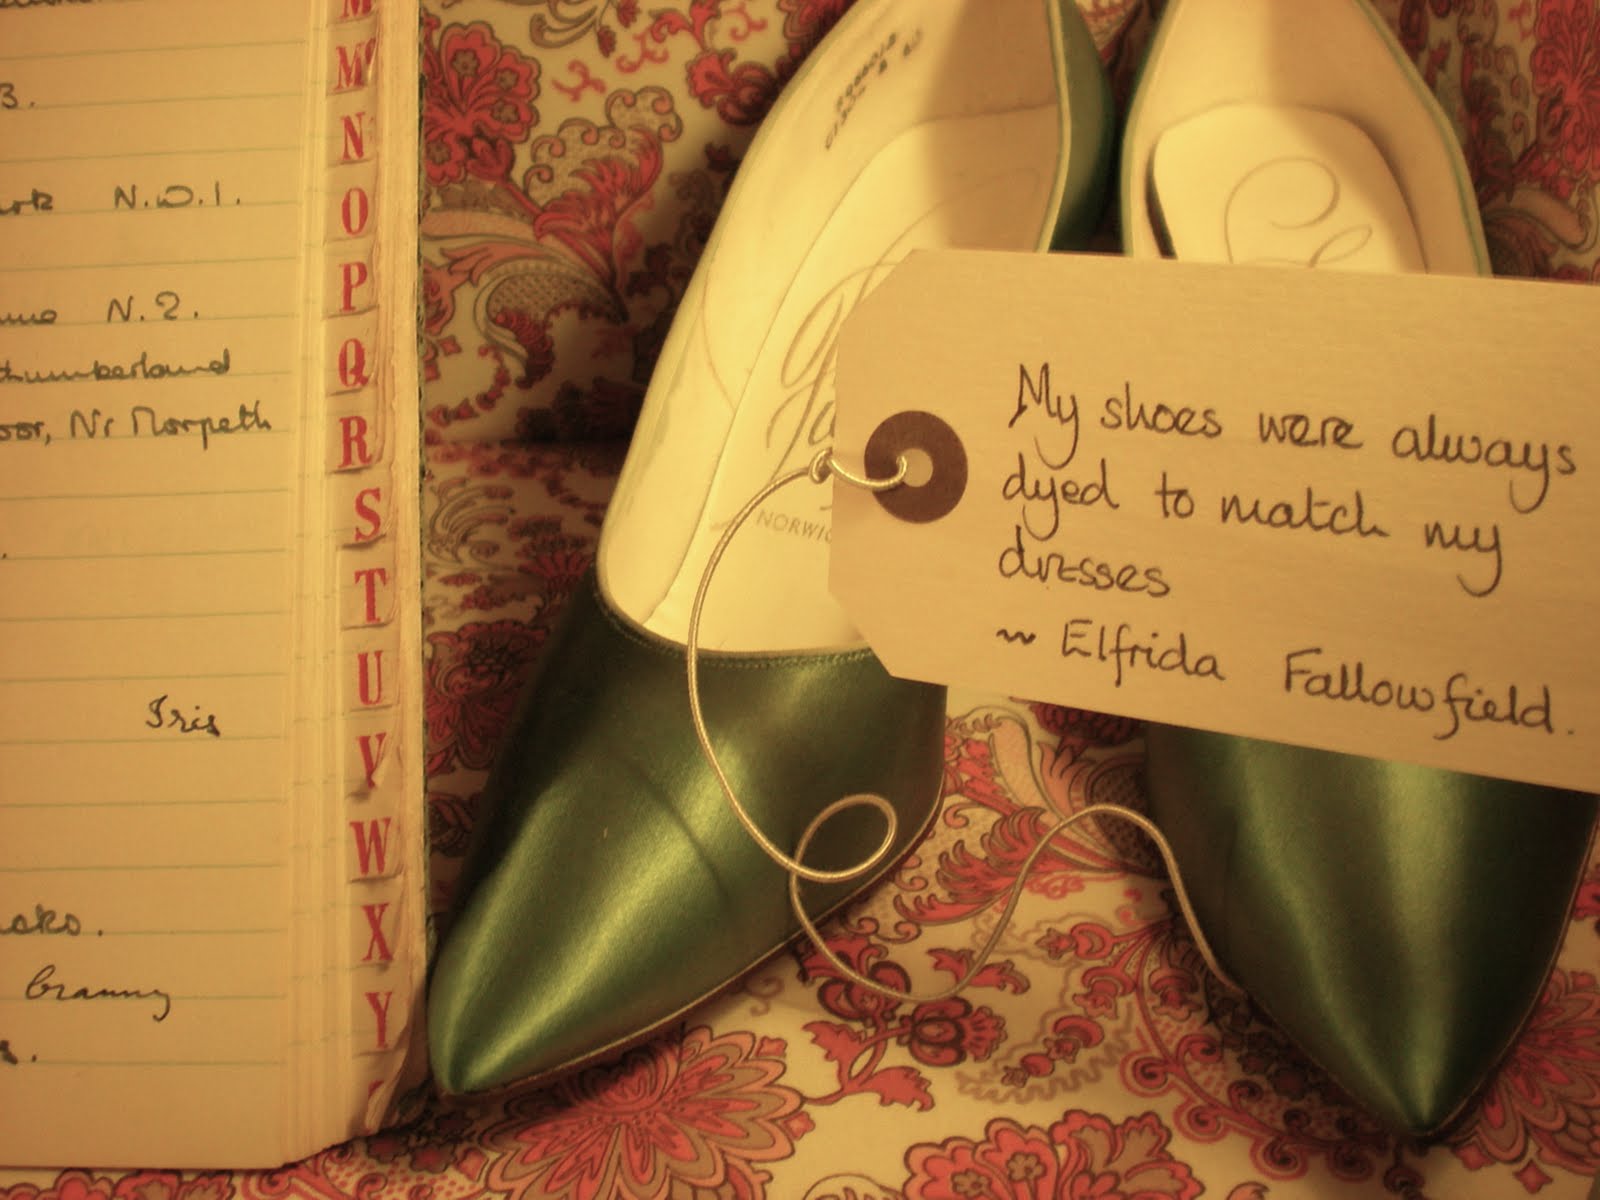 3.
N.W.1.
N.2.
Nr Morpeth
Iris
Granny
M
M
N
O
P
Q
R
S
T
U
V
W
X
Y
NORWIC
My shoes were always
dyed to match my
dresses
~ Elfrida Fallowfield.